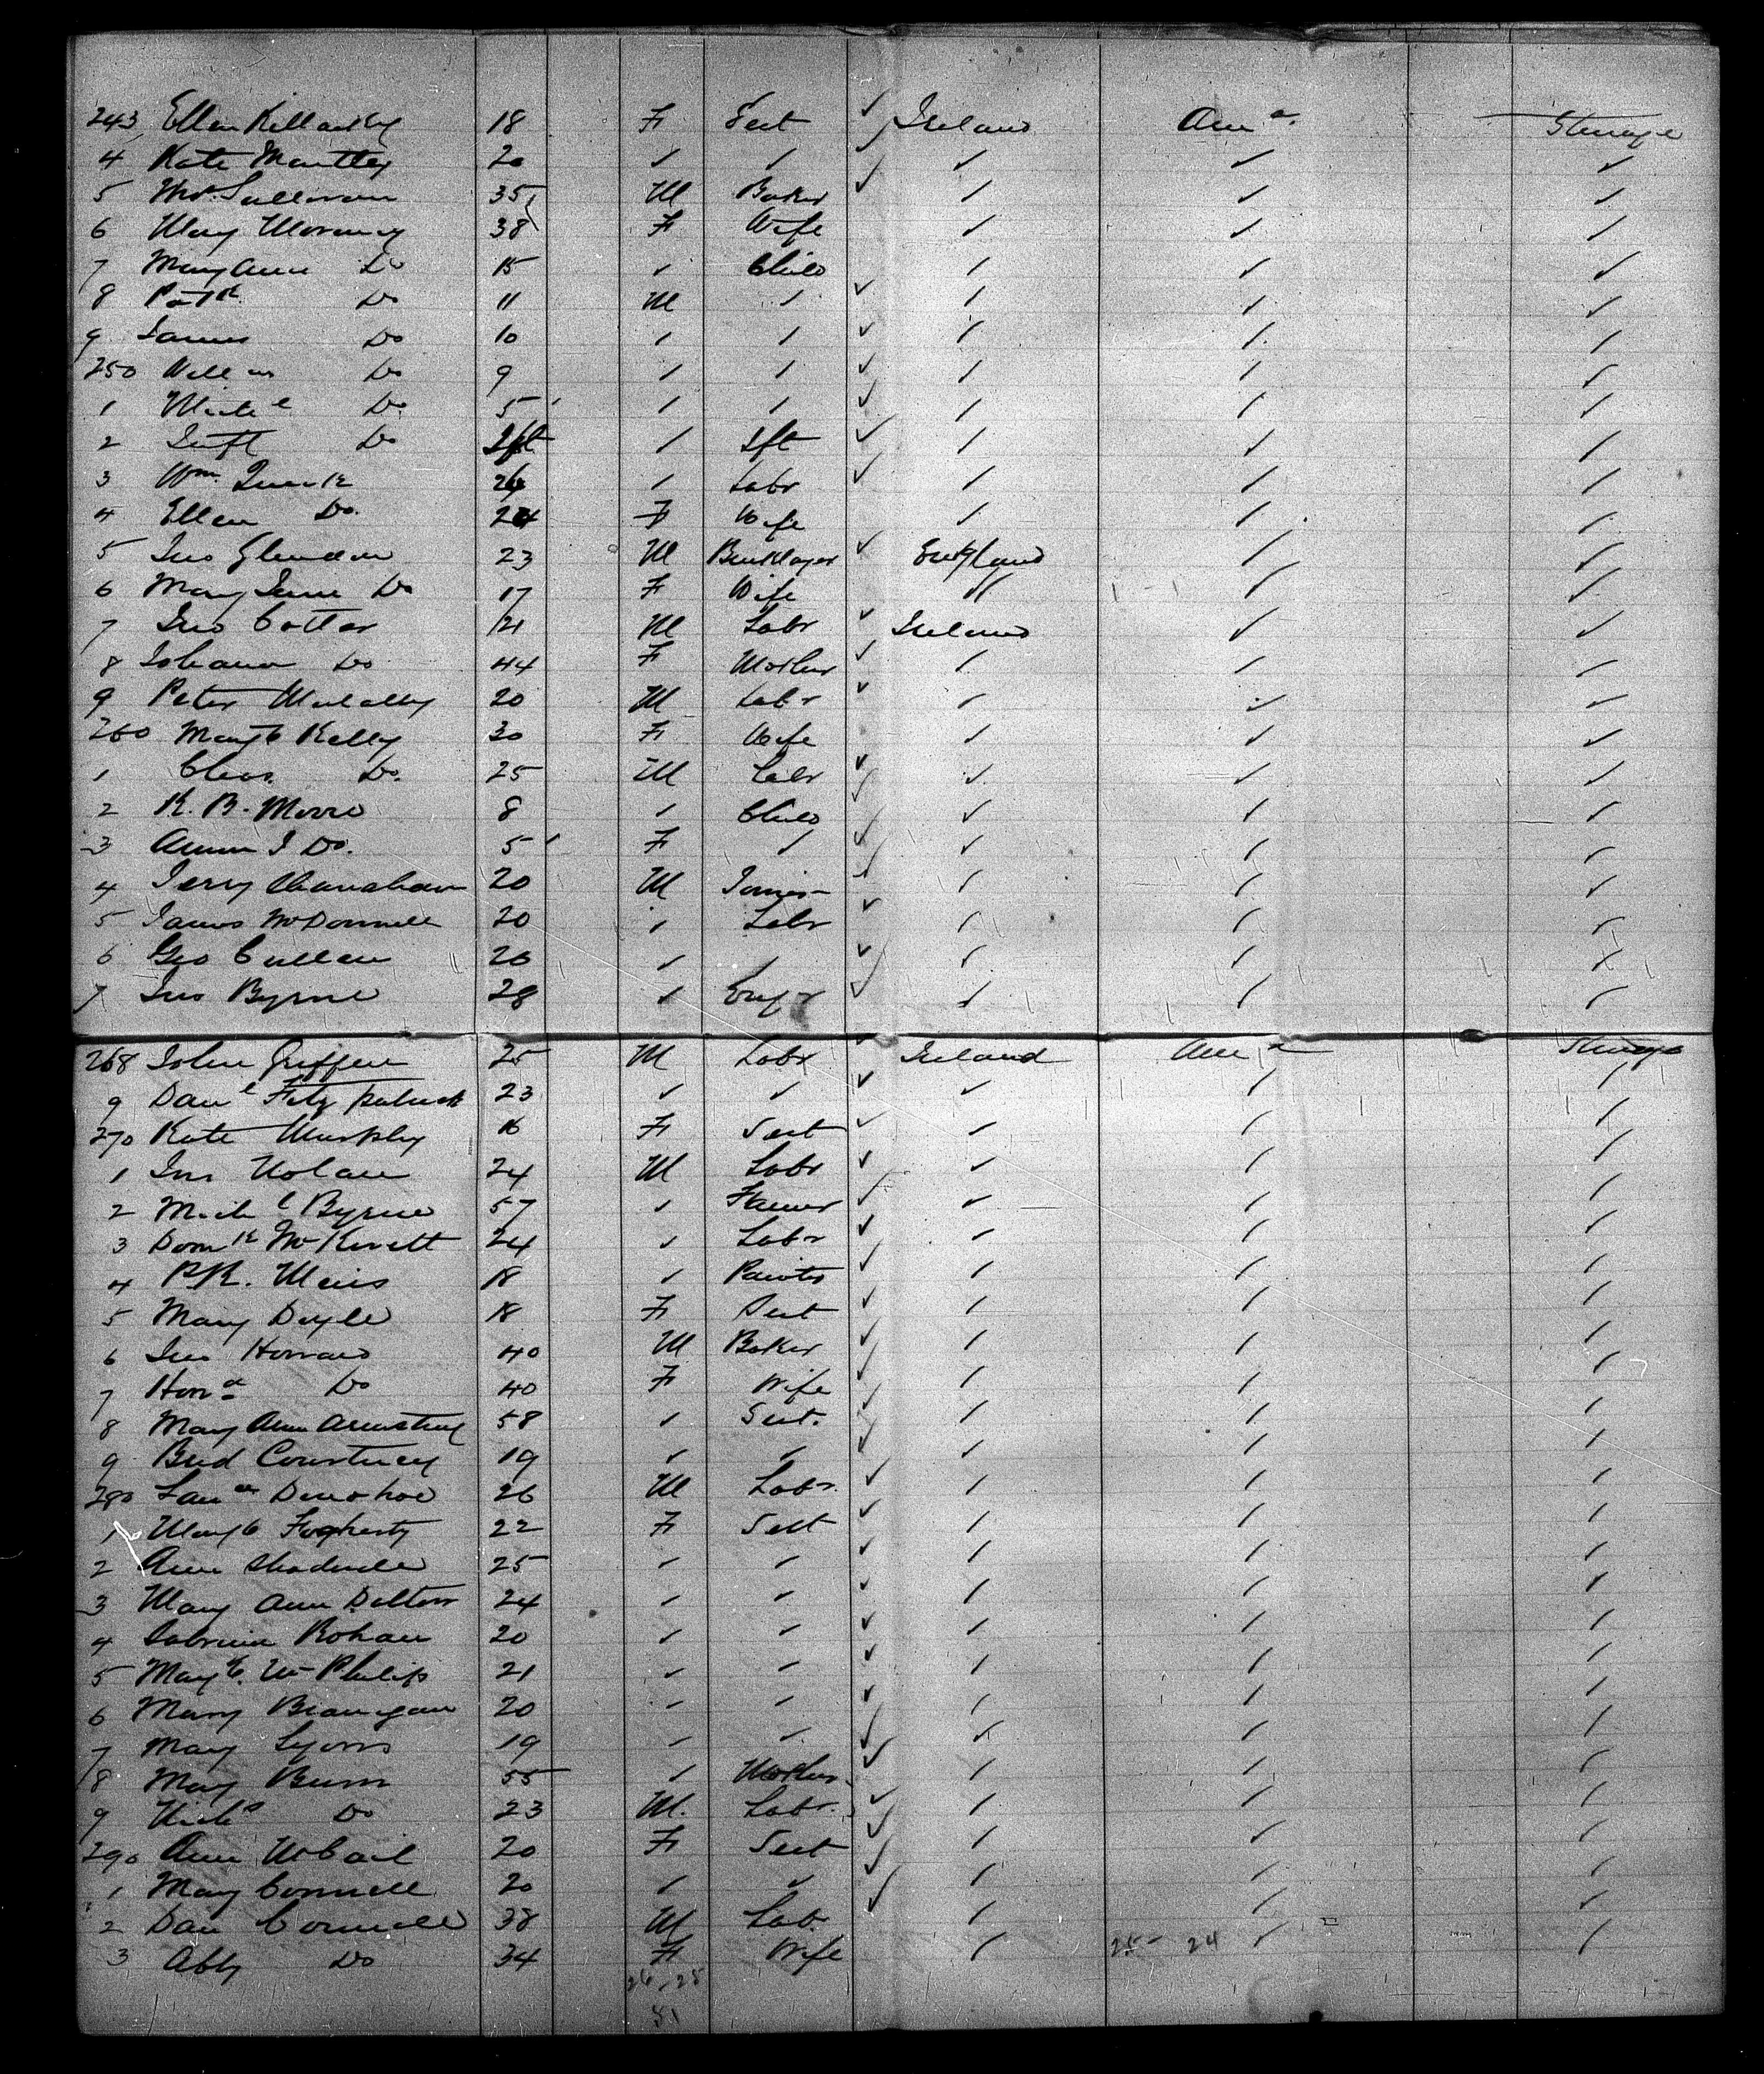 243 Ellen Killackey 18 F Sert ✓ Ireland Ama Steerage
4 Kate Mantley 20 ✓ ✓ ✓ ✓ ✓ ✓
5 Sullivan 35 M Baker ✓ ✓ ✓ ✓
6 Mary 38 F Wife ✓ ✓ ✓
7 Mary Ann Do 15 ✓ Child ✓ ✓ ✓
8 Patk Do 11 M ✓ ✓ ✓ ✓ ✓
9 James Do 10 ✓ ✓ ✓ ✓ ✓ ✓
250 Willm Do 9 ✓ ✓ ✓ ✓ ✓ ✓
1 Michl Do 5 ✓ ✓ ✓ ✓ ✓ ✓
2 Inft Do Ift ✓ Ift ✓ ✓ ✓ ✓
3 Wm. Quirk ✓ Labr ✓ ✓ ✓ ✓
4 Ellen Do. 24 F Wife ✓ ✓ ✓
5 Jno 23 M Bricklayer ✓ England ✓ ✓
6 Mary Jane Do 17 F Wife ✓ ✓ ✓
7 Jno Cotter 21 M Labr ✓ Ireland ✓ ✓
8 Johana Do 44 F Mother ✓ ✓ ✓ ✓
9 Peter Mulally 20 M Labr ✓ ✓ ✓ ✓
260 Margt Kelly 30 F Wife ✓ ✓ ✓
1 Chas. Do. 25 M Labr ✓ ✓ ✓ ✓
2 R. B. Moore 8 ✓ Child ✓ ✓ ✓ ✓
3 Ann J Do. 5 F ✓ ✓ ✓ ✓ ✓
4 Jerry Shanahan 20 M ✓ ✓ ✓ ✓
5 James McDonnell 20 ✓ Labr ✓ ✓ ✓ ✓
6 Geo Cullen 26 ✓ ✓ ✓ ✓ ✓ ✓
7 Jno Byrne 28 ✓ Engr ✓ ✓ ✓ ✓
268 John Griffen 25 M Labr ✓ Ireland Ama Steerage
9 Danl Fitzpatrick 23 ✓ ✓ ✓ ✓ ✓ ✓
270 Kate Murphy 16 F Sert ✓ ✓ ✓ ✓
1 Jno Nolan 24 M Labr ✓ ✓ ✓ ✓
2 Michl Byrne 57 ✓ Farmer ✓ ✓ ✓ ✓
3 Domk McKevitt 24 ✓ Labr ✓ ✓ ✓ ✓
4 18 ✓ Painter ✓ ✓ ✓ ✓
5 Mary Doyle 18 F Sert ✓ ✓ ✓ ✓
6 Jno Horran 40 M Baker ✓ ✓ ✓ ✓
7 Hona Do 40 F Wife ✓ ✓ ✓ ✓
8 Mary Ann Armstrong 58 ✓ Sert. ✓ ✓ ✓ ✓
9 Brid Courtney 19 ✓ ✓ ✓ ✓ ✓ ✓
280 Donohoe 26 M Labr. ✓ ✓ ✓ ✓
1 Margt Fogherty 22 F Sert ✓ ✓ ✓ ✓
2 Ann Shadwell 25 ✓ ✓ ✓ ✓ ✓ ✓
3 Mary Ann Dalton 24 ✓ ✓ ✓ ✓ ✓ ✓
4 Sabrina Rohan 20 ✓ ✓ ✓ ✓ ✓ ✓
5 Margt. McPhilip 21 ✓ ✓ ✓ ✓ ✓ ✓
6 Mary Branigan 20 ✓ ✓ ✓ ✓ ✓ ✓
7 Mary Lyons 19 ✓ ✓ ✓ ✓ ✓ ✓
8 Mary Burn 55 ✓ Mother ✓ ✓ ✓ ✓
9 Do 23 M. Labr. ✓ ✓ ✓ ✓
290 Ann McCail 20 F Sert ✓ ✓ ✓ ✓
1 Mary Connell 20 ✓ ✓ ✓ ✓ ✓ ✓
2 Dan Connell 38 M Lab. ✓ ✓ ✓ ✓
3 Abby Do 34 F Wife ✓ 25 24 ✓ ✓
26, 25
51